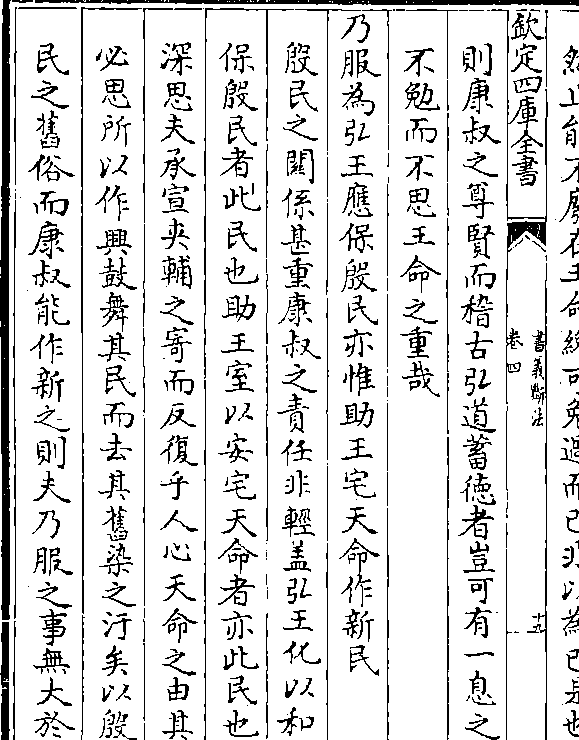 然止能不廢在王命纔可免過而已非以為已是也
欽定四庫全書
書義斷法
卷四
十五
則康叔之尊賢而稽古弘道蓄德者豈可有一息之
不勉而不思王命之重哉
乃服為弘王應保殷民亦惟助王宅天命作新民
殷民之關係甚重康叔之責任非輕盖弘王化以和
保殷民者此民也助王室以安宅天命者亦此民也
深思夫承宣夾輔之寄而反復乎人心天命之由其
必思所以作興鼓舞其民而去其舊染之汙矣以殷
民之舊俗而康叔能作新之則夫乃服之事無大於